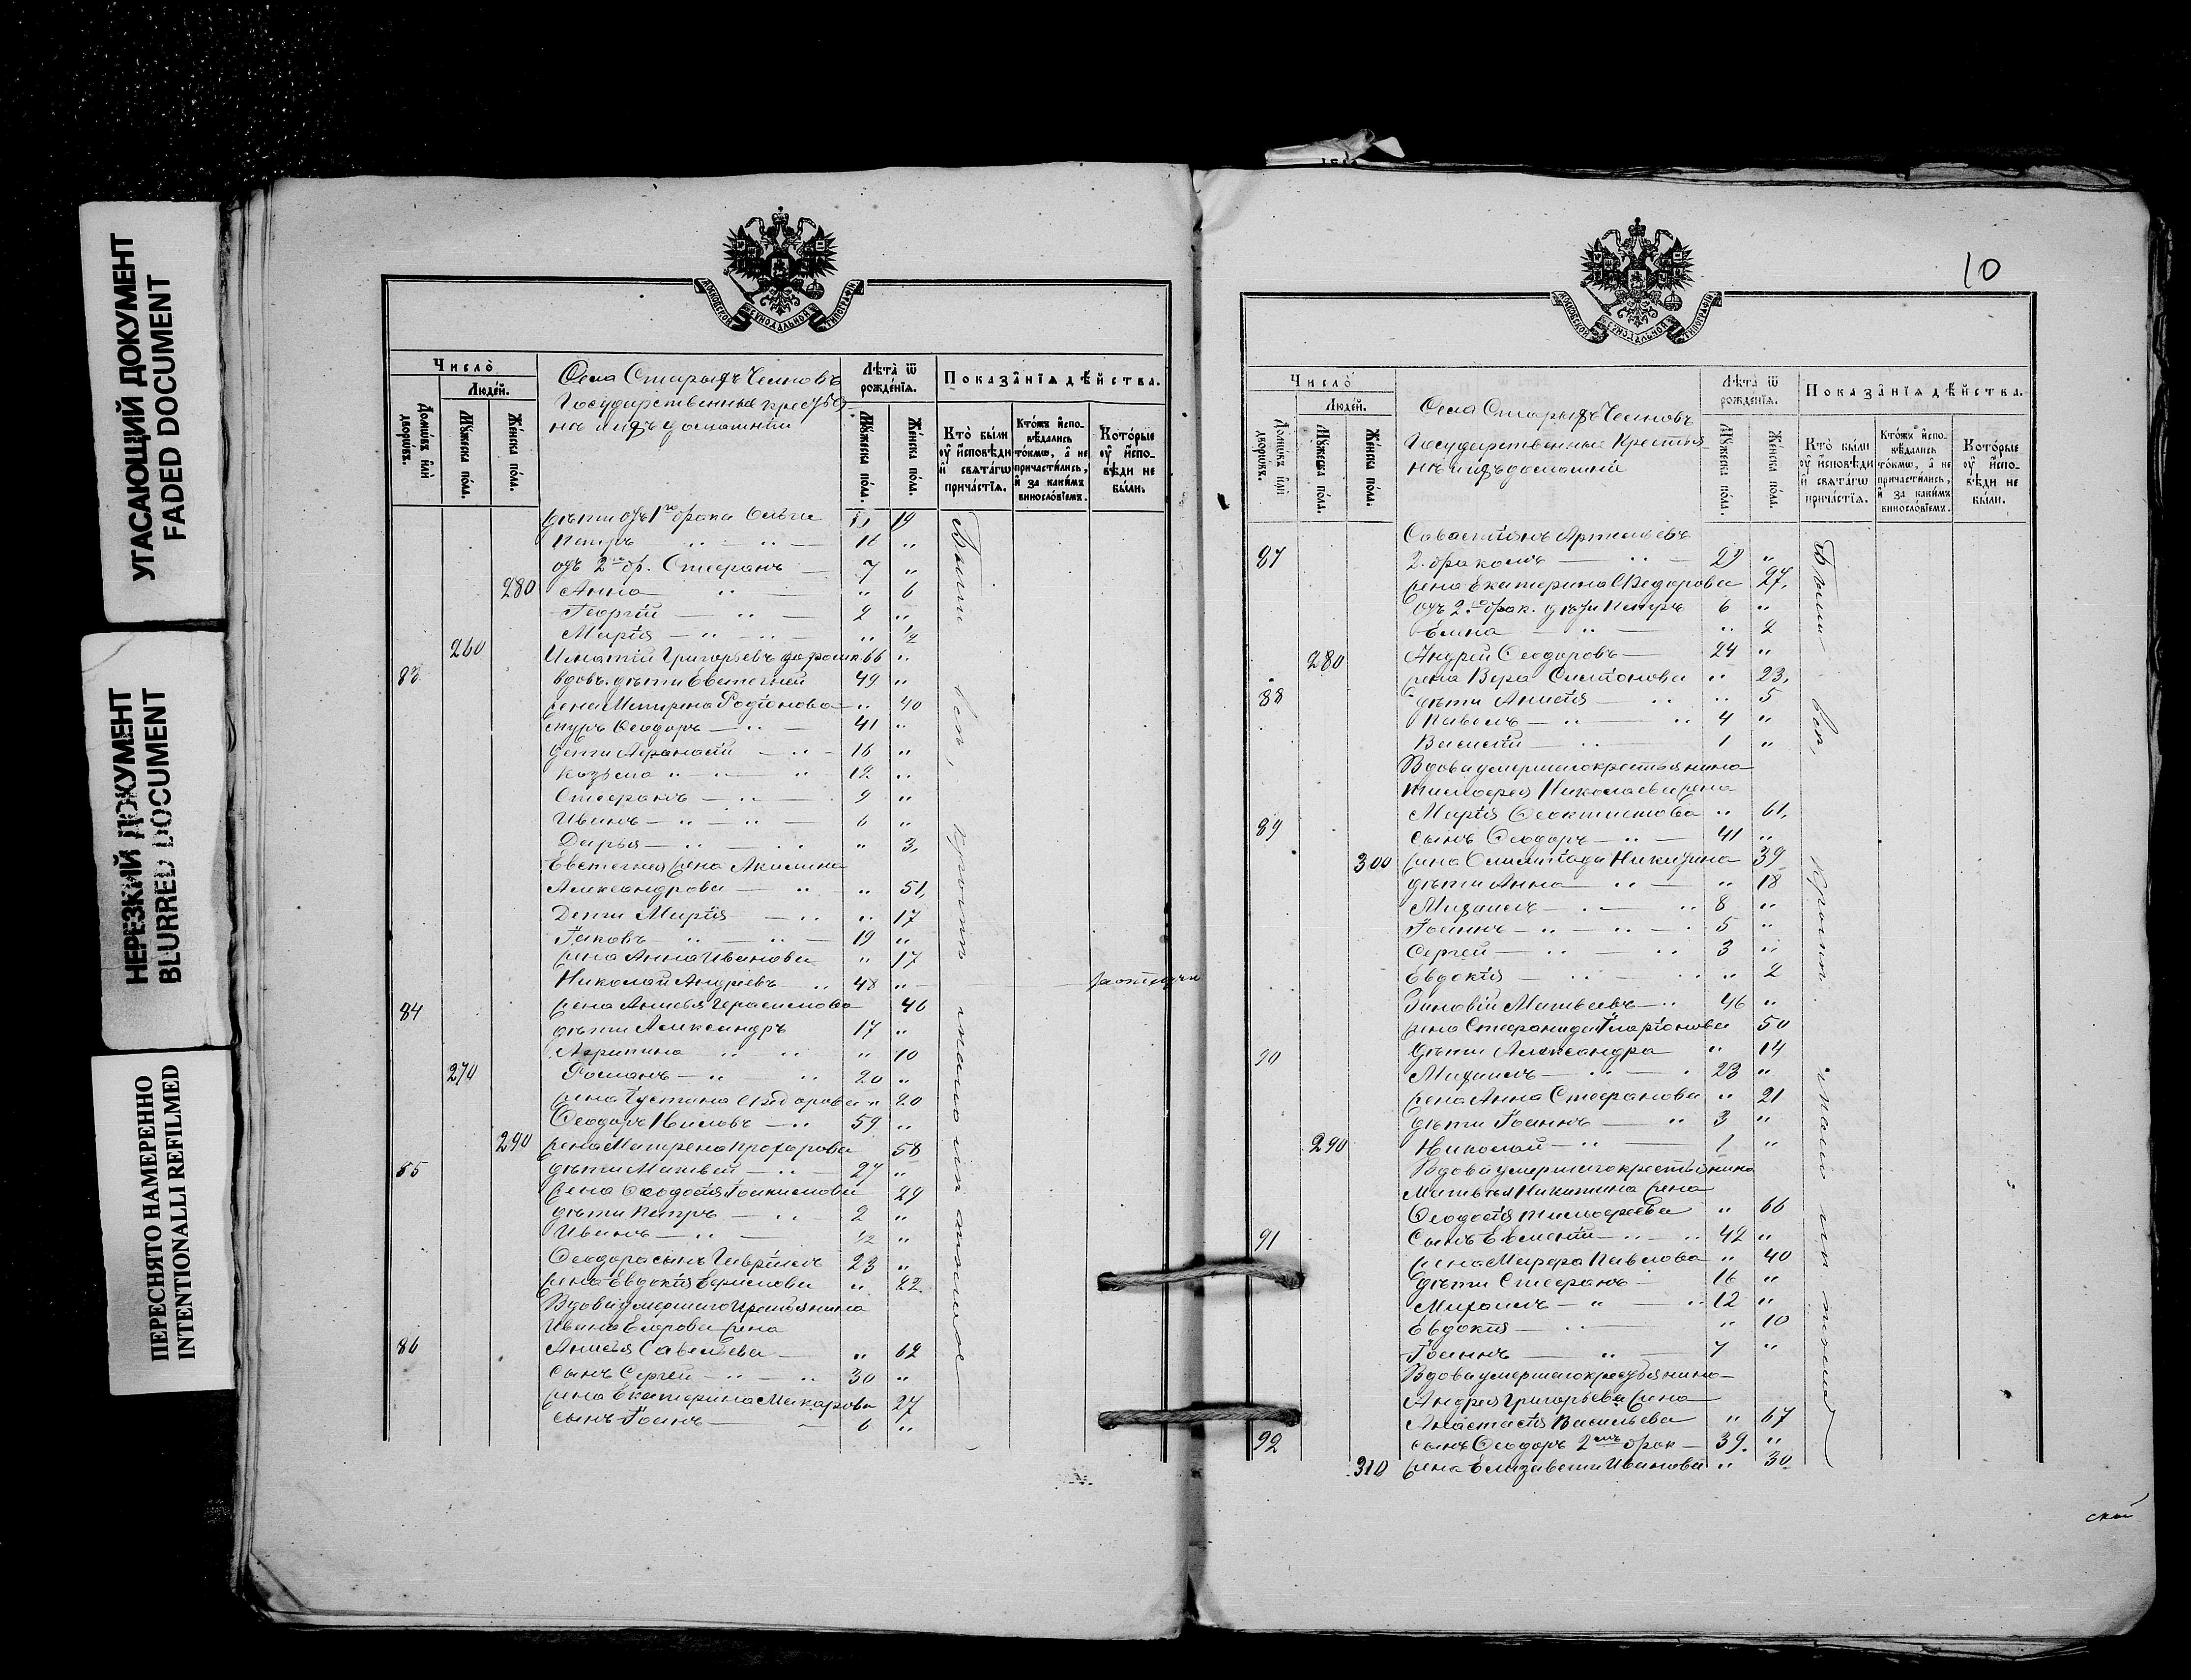 УГАСАЮЩИЙ ДОКУМЕНТ
FADED DOCUMENT
НЕРЕЗКИЙ ДОКУМЕНТ
BLURRED DOCUMENT
ПЕРЕСНЯТО НАМЕРЕННО
INTENTIONALLI REFILMED
МОСКОВСКОЙ СѴНОДАЛЬНОЙ ТИПОГРАФІИ
Число̀
Людей.
Домѡвъ или дворѡвъ.
Мꙋжеска пола.
Женска пола.
Села Старыхъ Челновъ
Государственные крестья
не и ихъ домашніи
Лѣта ѿ рожденїѧ.
Мꙋжеска пола.
Женска пола.
Показанїѧ дѣйства.
Кто были ꙋ исповѣди и свѧтагѡ причастїѧ.
Ктожъ исповѣдались токмѡ, а не причастились, и за какимъ винословїемъ.
Которые ꙋ исповѣди не были.
дѣти отъ 1го брака Ольга 19
Петръ 11 "
отъ 2го бр. Стефанъ 7 "
280 Анна " 6
Георгій 2 "
Марія " 1/2
260 Игнатій Григорьевъ 66 "
83 вдовъ. дѣти Евстегней 49 "
жена Матрена Родіонова " 40
Феодоръ 41 "
Дети Афанасій 16 "
Козьма 12 "
Стефанъ 9 "
Иванъ 6 "
Дарья " 3
Евстегнея жена Акилина
Александрова " 51
Дети Марія " 17
Іаковъ 19 "
жена Анна Иванова " 17
Николай Андреевъ 48 "
84 жена Анисья Герасимова 46
дѣти Александръ 17 "
Агрипина " 10
270 Романъ 20 "
жена Іустина Ѳедорова " 20
Феодоръ Ниловъ 59 "
290 жена Матрена Прохорова 58
85 дѣти Матвей 27 "
жена Феодосія Іоакимова 29
дѣти Петръ 2 "
Иванъ 1/2 "
Феодора сынъ Гавріилъ 23 "
жена Евдокія Ефимова " 22
Вдова умершаго крестьянина
Ивана Егорова жена
86 Анисья Савельева " 62
Сынъ Сергей 30 "
жена Екатерина Макарова 27
сынъ Іоаннъ 6 "
Были
10
МОСКОВСКОЙ СѴНОДАЛЬНОЙ ТИПОГРАФІИ
Число̀
Людей.
Домѡвъ или дворѡвъ.
Мꙋжеска пола.
Женска пола.
Села Старыхъ Челновъ
Государственные Крестья
не и ихъ домашніи
Лѣта ѿ рожденїѧ.
Мꙋжеска пола.
Женска пола.
Показанїѧ дѣйства.
Кто были ꙋ исповѣди и свѧтагѡ причастїѧ.
Ктожъ исповѣдались токмѡ, а не причастились, и за какимъ винословїемъ.
Которые ꙋ исповѣди не были.
Савастіянъ Артемьевъ
87 2. бракомъ 29 "
жена Екатерина Ѳедорова 27
отъ 2го брак. дѣти Петръ 6 "
Елена " 2
280 Андрей Феодоровъ 24 "
жена Вера " 23
88 дѣти Анисія " 5
Павелъ 4 "
Василій 1 "
Вдова умершаго крестьянина
Тимофея Николаева жена
Марія Феоктистова " 61
89 сынъ Феодоръ 41 "
300 жена Олимпіада Никитина 39
дѣти Анна " 18
Михаилъ 8 "
Іоаннъ 5 "
Сергей 3 "
Евдокія " 2
Зиновій Матвеевъ 46 "
жена Стефанида Иларіонова 50
90 дѣти Александра " 14
Михаилъ 23 "
жена Анна Стефанова " 21
дѣти Іоаннъ 3 "
290 Николай 1 "
Вдова умершаго крестьянина
Матвея Никитина жена
Феодосія Тимофеева " 66
91 Сынъ Евментій 42 "
жена Марфа Павлова " 40
дѣти Стефанъ 16 "
Михаилъ 12 "
Евдокія " 10
Іоаннъ 7 "
Вдова умершаго крестьянина
Андрея Григорьева жена
Анастасія Васильева " 67
92 сынъ Феодоръ 2мъ брак 39 "
310 жена Елизавета Иванова " 30
Были